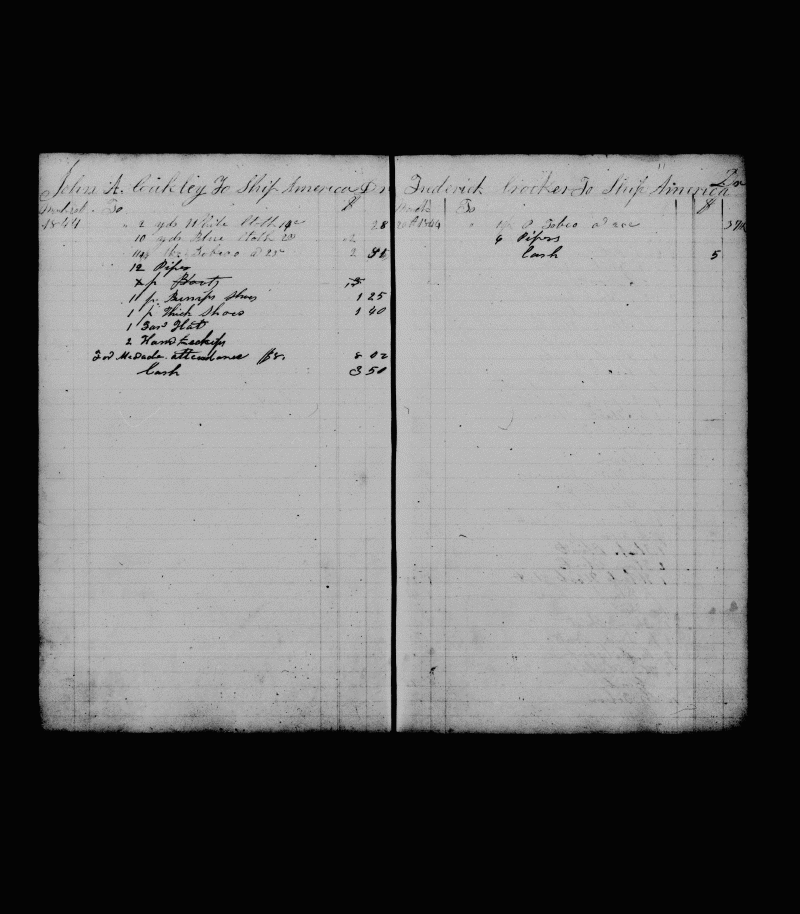 John A. Coukley To Ship America Dr
To $
1844 " 2 yds White Cloth 14c 28
10 yds Blue Cloth 20 2
lbs Tobaco @ 25 2
12 Pipes
p. Boots
1 p. Pumps Shoes 1 25
1 p. Thick Shoes 1 40
1 Hat
2 Handkechifs
For attendance 8 02
Cash 3 50
Frederick Crocker To Ship America Dr
To $
1844 " Tobco
6 Pipes
Cash 5